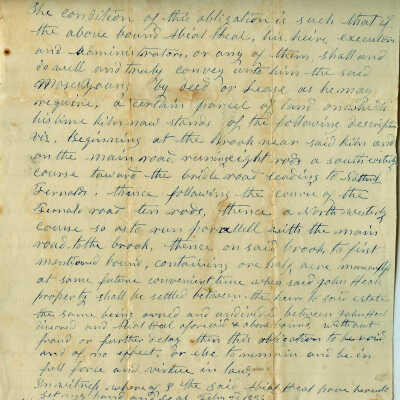 The condition of this obligation is such that if
the above bound Abial Heal, his heirs executors
and administrators, or any of them, shall and
do well and truly convey unto him the said
Moses Young by deed or Lease as he may
require, a certain parcel of land on which
his lime kiln now stands of the following description
viz. Beginning at the brook near said kiln and
on the main road running eight rods a southwesterly
course toward the bridle road leading to
Fernalds. thence following the course of the
Fernald road ten rods, thence a North westerly
course so as to run parallell with the main
road to the brook, thence on said brook to first
mentioned bound, containing one half acre
at some future convenient time when said John Heal
property shall be settled between the heirs to said estate
the same being owned and undivided between John Heal
deceased and Abial Heal aforesaid & above bound, without
fraud or further delay then this obligation to be void
and of no effect, or else to remain and be in
full force and virtue in law.
In witness whereof I the said Abial Heal have hereunto
set my hand and seal